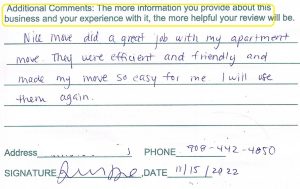 Additional Comments: The more information you provide about this
business and your experience with it, the more helpful your review will be.
Nice move did a great job with my apartment
move. They were efficient and friendly and
made my move so easy for me I will use
them again.
Address PHONE 908-442-4050
SIGNATURE DATE 11/15/2022